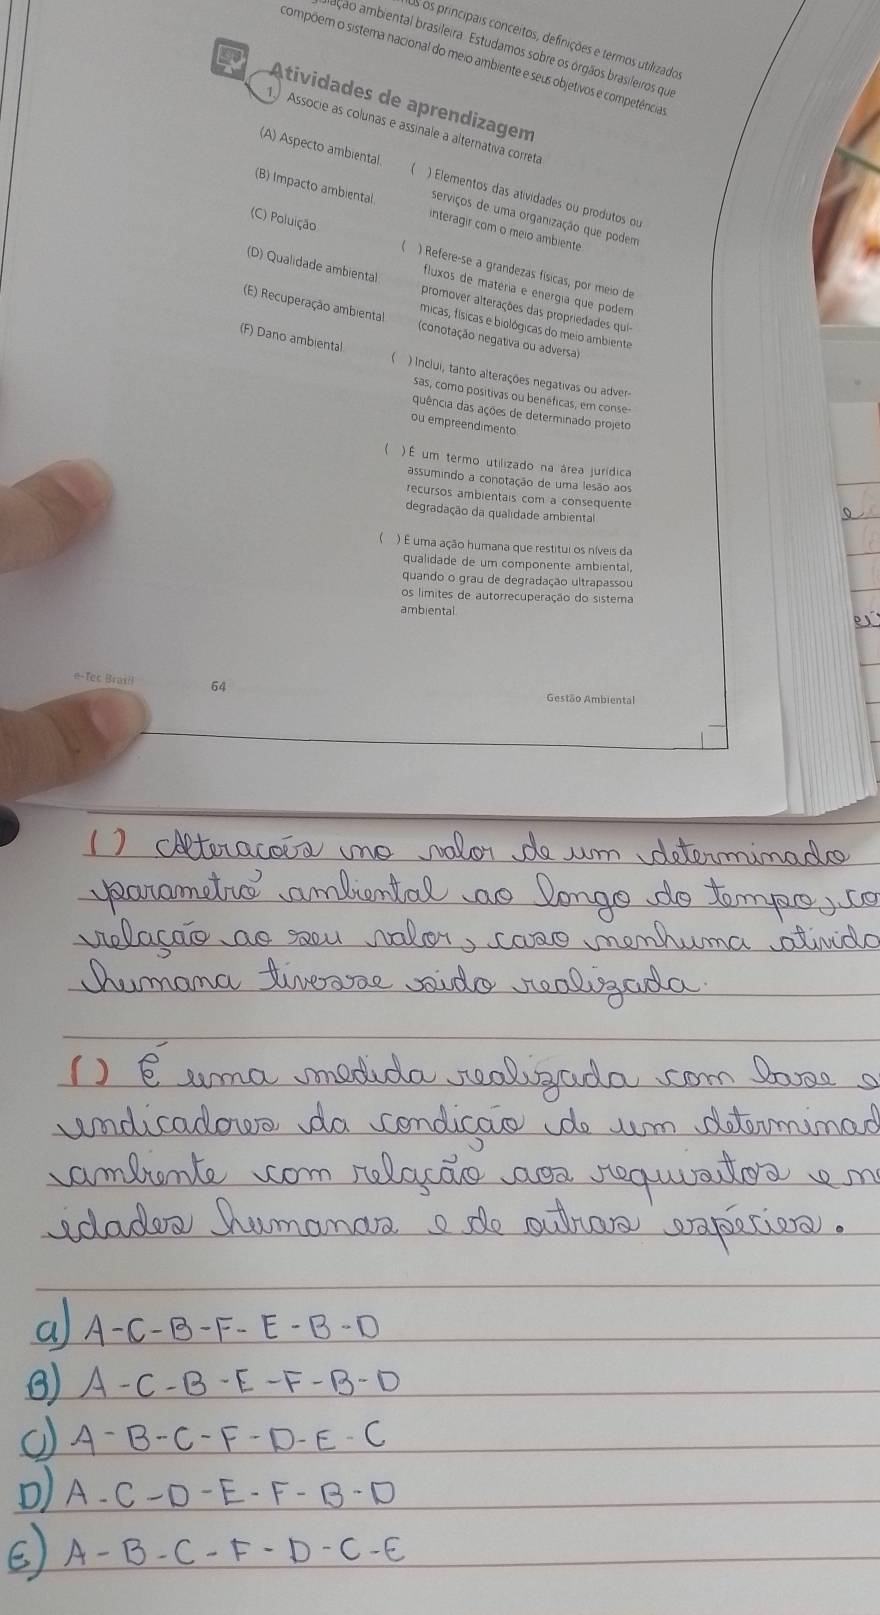 os principais conceitos, definições e termos utilizados
ação ambiental brasileira. Estudamos sobre os órgãos brasileiros que
compõem o sistema nacional do meio ambiente e seus objetivos e competências.
Atividades de aprendizagem
1. Associe as colunas e assinale a alternativa correta
(A) Aspecto ambiental.
(B) Impacto ambiental.
(C) Poluição
(D) Qualidade ambiental
(E) Recuperação ambiental
(F) Dano ambiental
( ) Elementos das atividades ou produtos ou
serviços de uma organização que podem
interagir com o meio ambiente
( ) Refere-se a grandezas físicas, por meio de
fluxos de matéria e energia que podem
promover alterações das propriedades quí-
micas, físicas e biológicas do meio ambiente
(conotação negativa ou adversa)
( ) Inclui, tanto alterações negativas ou adver-
sas, como positivas ou benéficas, em conse-
quência das ações de determinado projeto
ou empreendimento
( ) É um termo utilizado na área jurídica
assumindo a conotação de uma lesão aos
recursos ambientais com a consequente
degradação da qualidade ambiental
( ) É uma ação humana que restitui os níveis da
qualidade de um componente ambiental,
quando o grau de degradação ultrapassou
os limites de autorrecuperação do sistema
ambiental.
e-Tec Brasil
64
Gestão Ambiental
( ) Alterações no valor de um determinado
parametro ambiental ao longo do tempo, co
relação ao seu valor, caso nenhuma ativida
humana tivesse sido realizada.
( ) É uma medida realizada com base a
indicadores da condição de um determinad
ambiente com relação aos requisitos e n
idades humanas e de outras espécies.
a) A-C-B-F-E-B-D
B) A-C-B-E-F-B-D
C) A-B-C-F-D-E-C
D) A-C-D-E-F-B-D
E) A-B-C-F-D-C-E